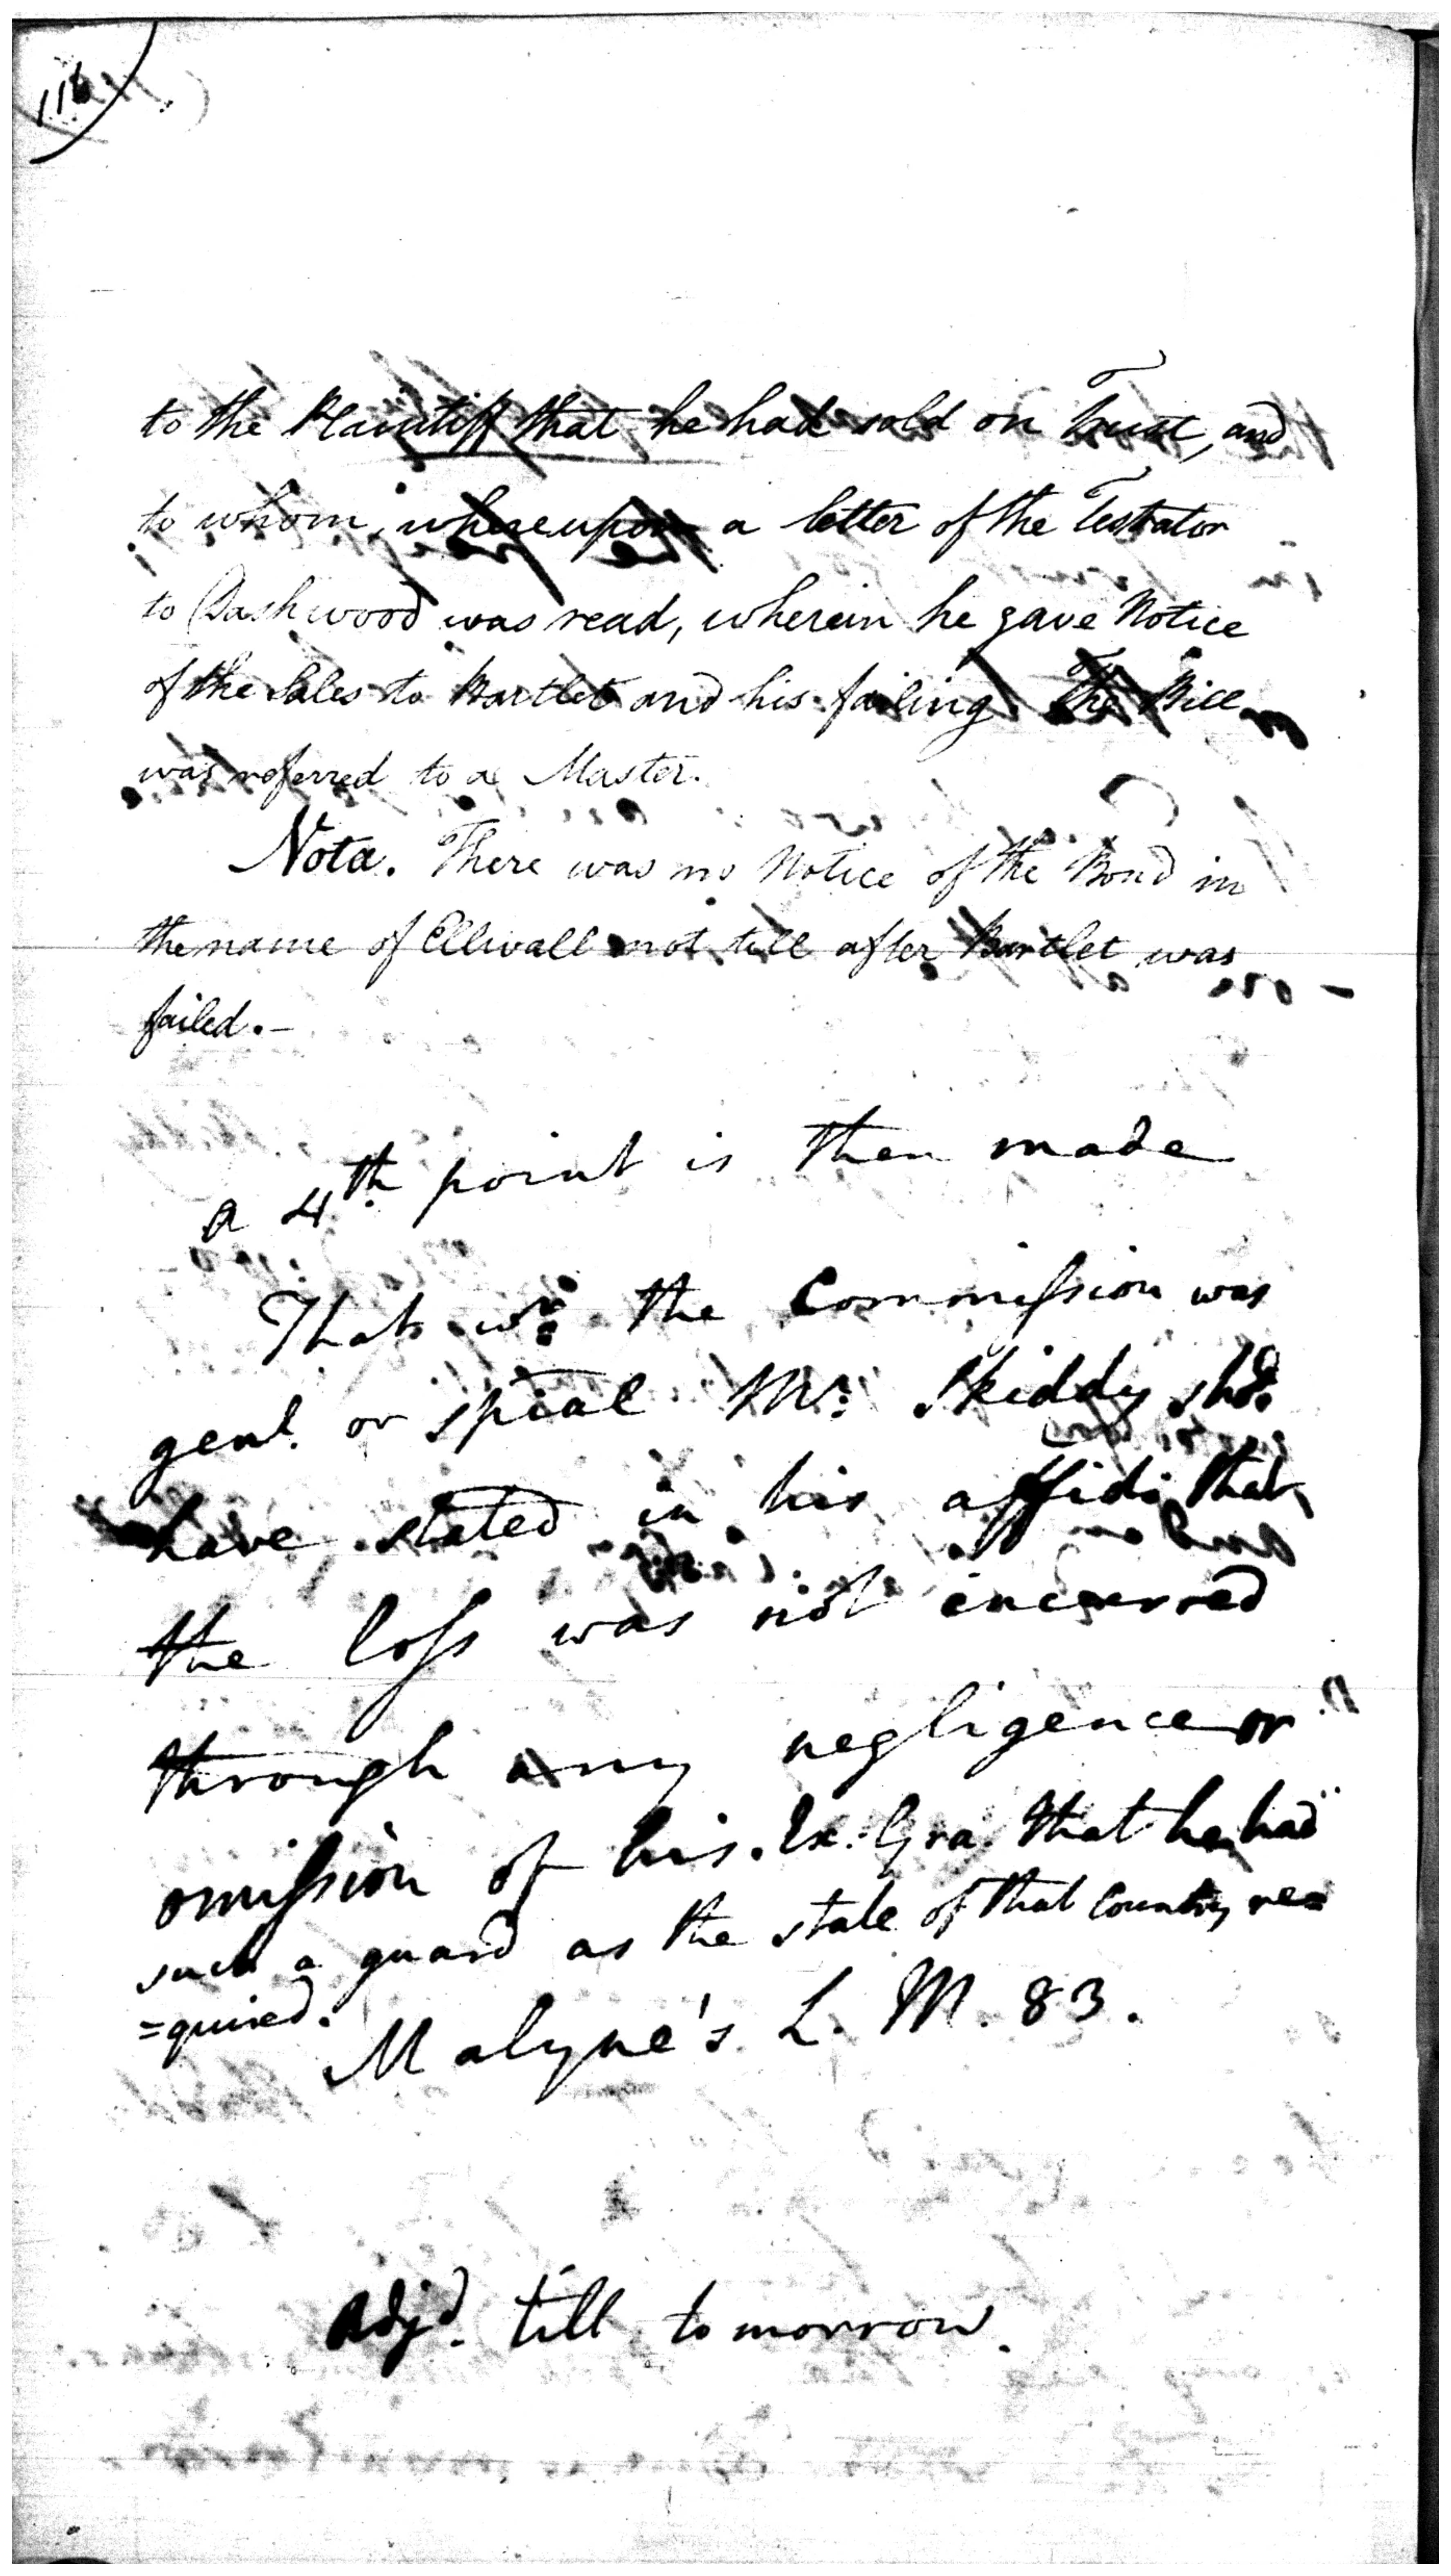 116
to the Plaintiff that he had sold on Trust, and
to whom, whereupon a letter of the Testator
to Dashwood was read, wherein he gave Notice
of the Sales to Bartlet and his failing. The Bill
was referred to a Master.
Nota. There was no Notice of the Bond in
the name of Ellwall not till after Bartlet was
failed.—
a 4th point is then made
That wr. the Commission was
genl. or spial Mr. Skiddy shd.
have stated in his affidt. that
the loss was not incurred
through any negligence or
omission of his. Ex. Gra. that he had
such a guard as the state of that Country re=
=quired.
Malyne's L. M. 83.
Adjd. till tomorrow.